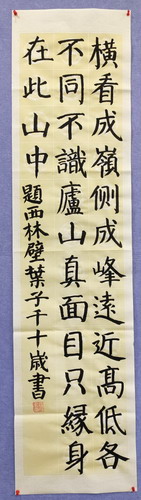 橫看成嶺側成峰遠近高低各
不同不識廬山真面目只緣身
在此山中題西林壁葉子千十歲書